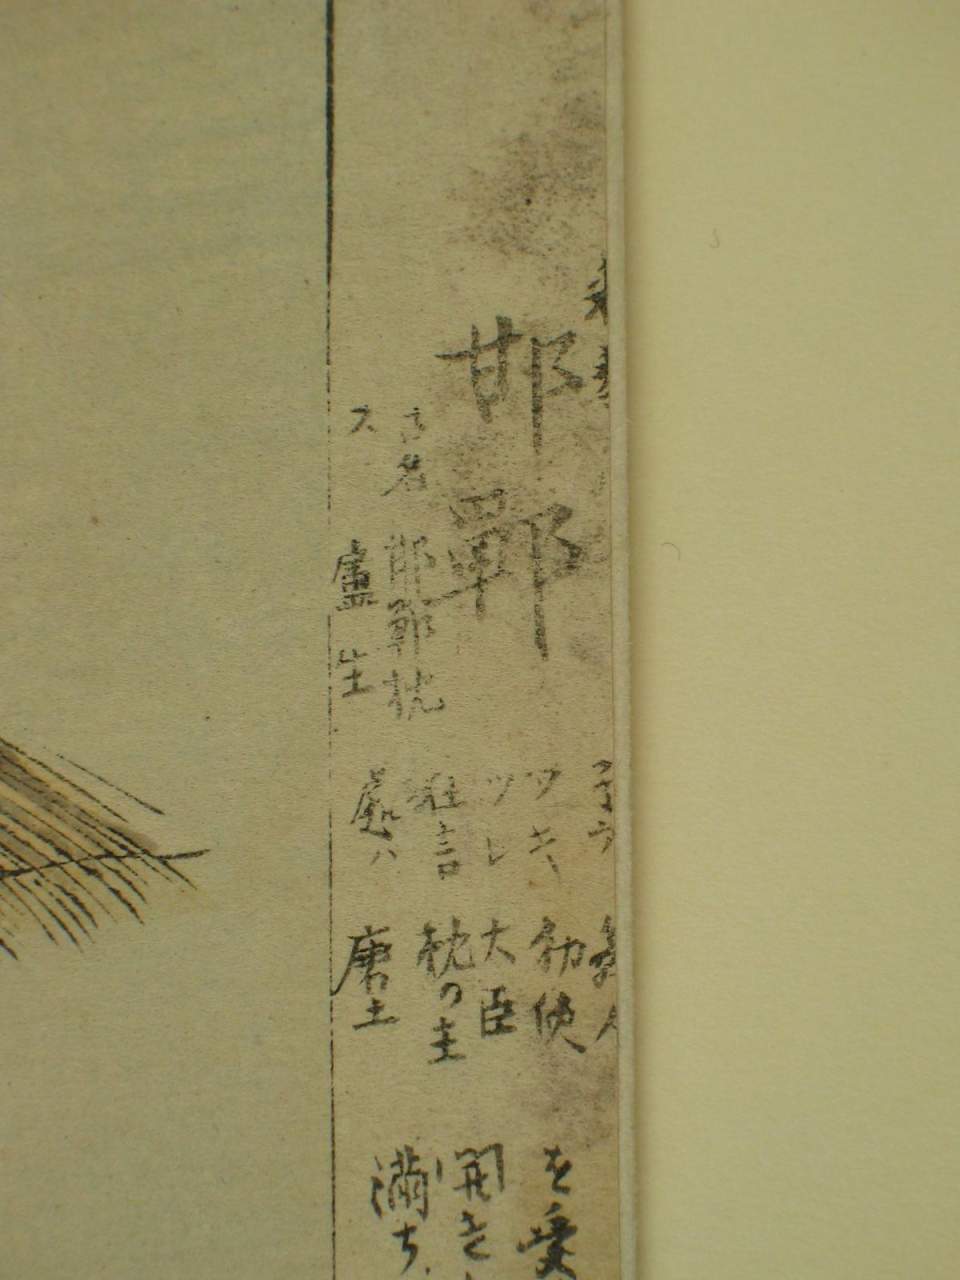 邯鄲
古名 邯鄲枕
盧生
子方 舞人
ワキ 勅使
ツレ 大臣
狂言 枕の主
處ハ 唐土
を受
開き
満ち